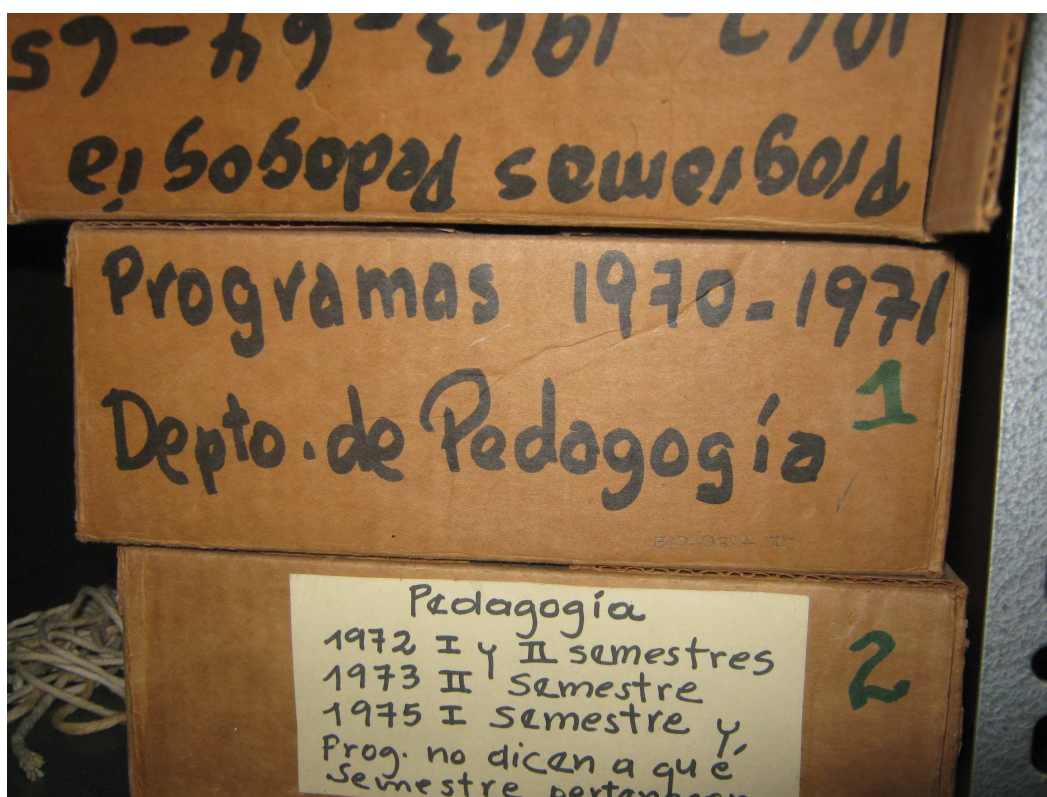 Programas Pedagogía
1963-64-65
Programas 1970-1971
Depto. de Pedagogía
1
Pedagogía
1972 I y II semestres
1973 II semestre
1975 I semestre y
Prog. no dicen a qué
semestre
2